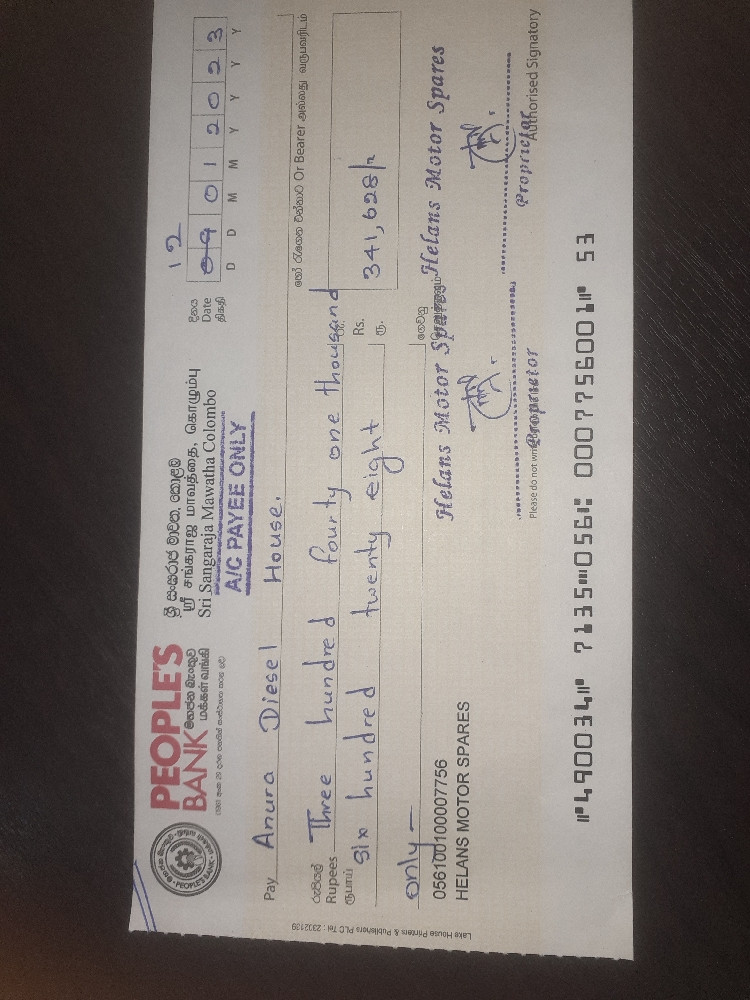 PEOPLE'S
BANK මහජන බැංකුව
மக்கள் வங்கி
PEOPLE'S BANK
ශ්‍රී සංඝරාජ මාවත, කොළඹ
ஸ்ரீ சங்கராஜ மாவத்தை, கொழும்பு
Sri Sangaraja Mawatha Colombo
A/C PAYEE ONLY
12
දිනය
Date
திகதி
09 01 2023
D D M M Y Y Y Y
Pay Anura Diesel House.
හෝ රැගෙන එන්නාට Or Bearer அல்லது வருபவரிடம்
රුපියල්
Rupees
ரூபாய்
Three hundred fourty one thousand
six hundred twenty eight
only —
රු.
Rs.
ரூ.
341,628/=
056100100007756
HELANS MOTOR SPARES
Helans Motor Spares
Helans Motor Spares
Proprietor
Proprietor
Authorised Signatory
Please do not write
⑈490034⑈ 7135⑉056⑆ 000775600⑈ 53
Lake House Printers & Publishers PLC Tel : 2302139